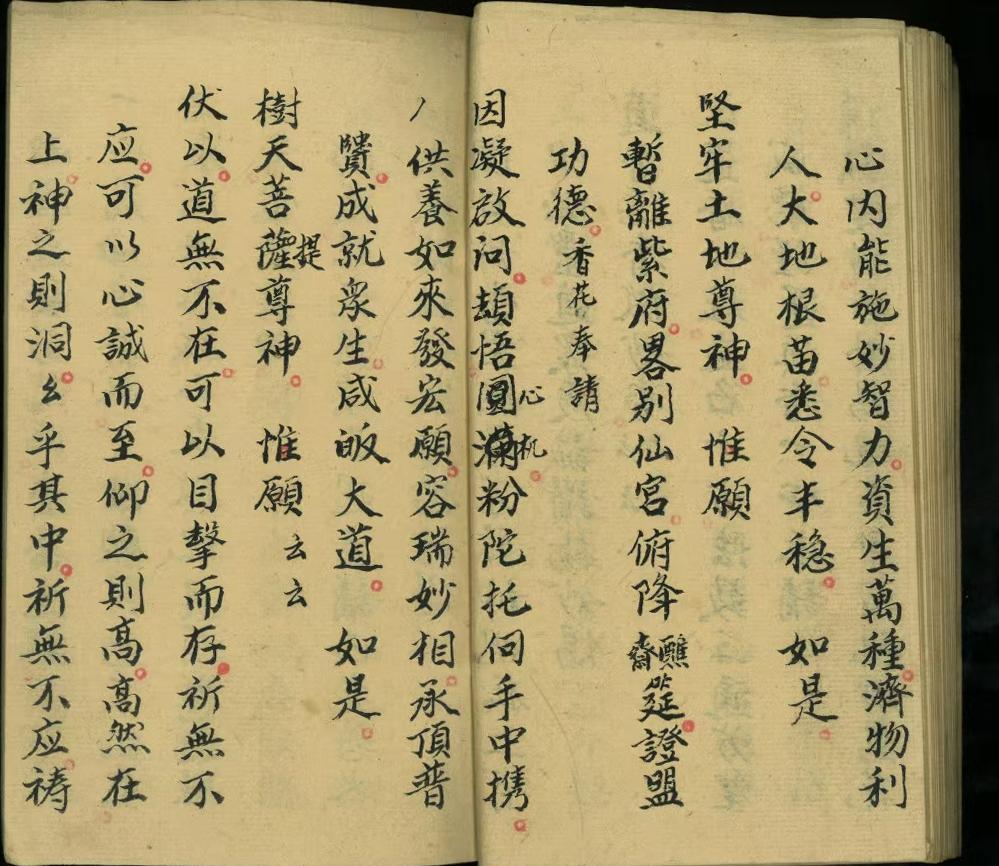 心内能施妙智力資生萬種濟物利
人大地根苗悉令丰穏如是
堅牢土地尊神惟願
暫離紫府畧別仙宮俯降醮齋筵證盟
功德香花奉請
因凝啟问頡悟圓滿心机粉陀托伺手中携
八供養如來發宏願容瑞妙相承頂普
贊成就衆生咸皈大道如是
樹天菩薩提尊神惟願云云
伏以道無不在可以目擊而存祈無不
应可以心誠而至仰之則高高然在
上神之則洞幺乎其中祈無不应祷